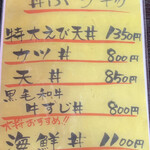 特大えび天丼 1350円
カツ丼 800円
天丼 850円
黒毛和牛
牛すじ丼 800円
大将おすすめ!!
海鮮丼 1100円